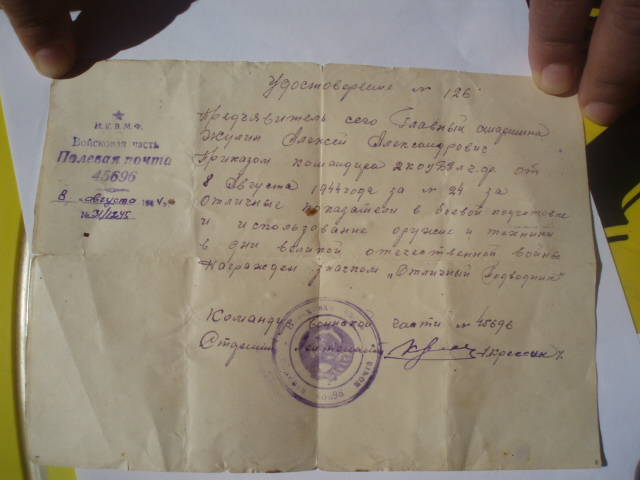 Удостоверение № 126
Н.К.В.М.Ф.
Войсковая часть
Полевая почта
45696
8 августа 1944 г.
№
Предъявитель сего Главный старшина
Жулин Алексей Александрович
Приказом командира от
8 Августа 1944 года за № 24 за
Отличные показатели в боевой подготовке
и использование оружие и техники
в дни великой отечественной войны
Награжден значком „Отличный Подводник"
Командир воинской части № 45696
Старший Лейтенант